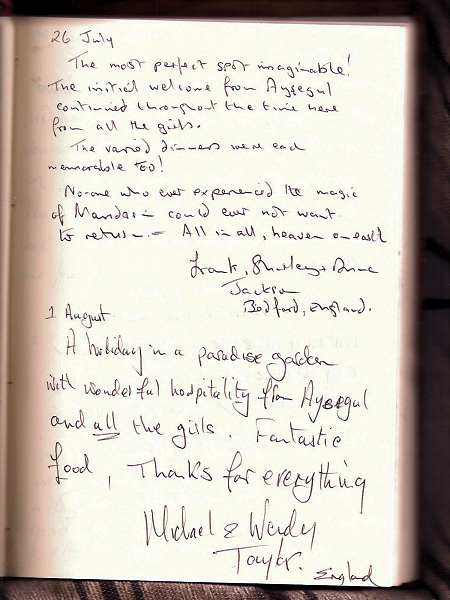 26 July
The most perfect spot imaginable!
The initial welcome from Aysegul
continued throughout the time here
from all the girls.
The varied dinners were each
memorable too!
No-one who ever experienced the magic
of Mandarin could ever not want
to return. – All in all, heaven on earth
Frank, Shirley & Anne
Jackson
Bedford, England.
1 August
A holiday in a paradise garden
with wonderful hospitality from Aysegul
and all the girls. Fantastic
food, Thanks for everything
Michael & Wendy
Taylor.
England